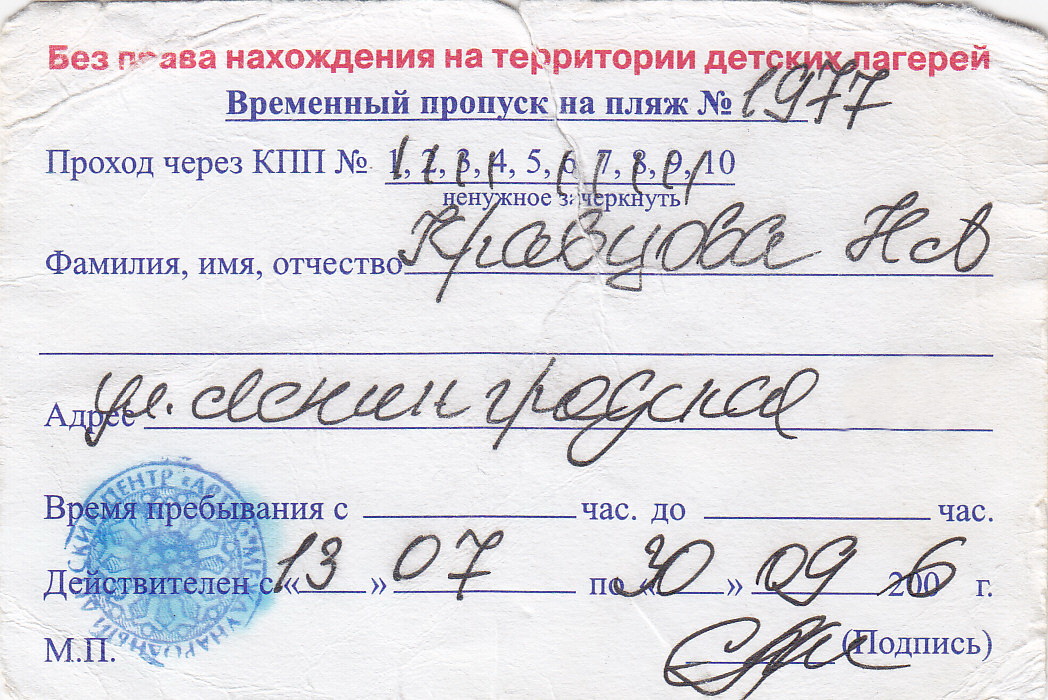 Без права нахождения на территории детских лагерей
Временный пропуск на пляж № 1977
Проход через КПП № 1, 2, 3, 4, 5, 6, 7, 8, 9, 10
ненужное зачеркнуть
Фамилия, имя, отчество Кравцова
Адрес ул. Ленинградская
Время пребывания с час. до час.
Действителен с «13» 07 по «30» 09 2006 г.
М.П. (Подпись)